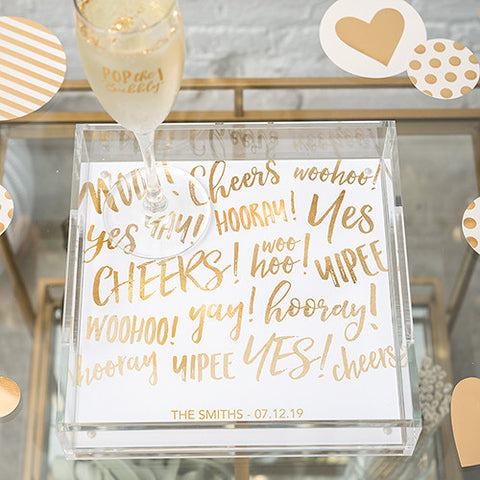 POP the Bubbly!
WOO! Cheers woohoo!
yes YAY! HOORAY! Yes
CHEERS! woo hoo! YIPEE
WOOHOO! yay! hooray!
hooray YIPEE YES! cheers
THE SMITHS - 07.12.19